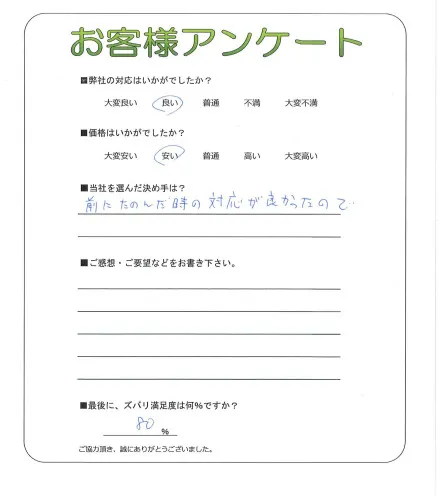 お客様アンケート
■弊社の対応はいかがでしたか？
大変良い 良い 普通 不満 大変不満
■価格はいかがでしたか？
大変安い 安い 普通 高い 大変高い
■当社を選んだ決め手は？
前にたのんだ時の対応が良かったので
■ご感想・ご要望などをお書き下さい。
■最後に、ズバリ満足度は何％ですか？
80 ％
ご協力頂き、誠にありがとうございました。